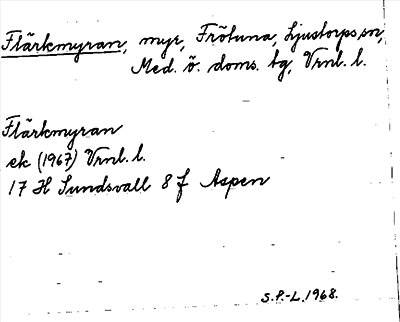 Flärkmyran, myr, Frötuna, Ljustorps sn,
Med. ö. doms. tg, Vrnl. l.
Flärkmyran
ek (1967) Vrnl. l.
17 H Sundsvall 8 f Aspen
S.P.-L. 1968.